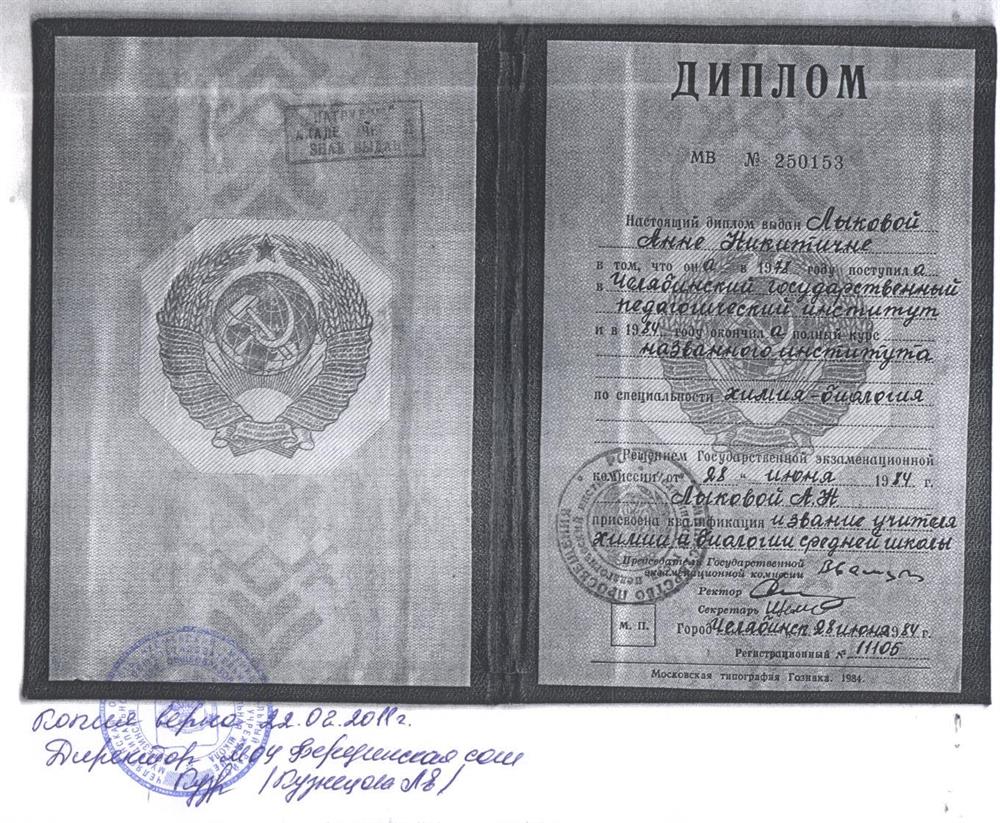 НАГРУДНЫЙ
АКАДЕМИЧЕСКИЙ
ЗНАК ВЫДАН
ДИПЛОМ
МВ № 250153
Настоящий диплом выдан Лыковой
Анне Никитичне
в том, что она в 1978 году поступила
в Челябинский государственный
педагогический институт
и в 1984 году окончила полный курс
названного института
по специальности химия-биология
Решением Государственной экзаменационной
комиссии от 28 " июня 1984 г.
Лыковой А.Н
присвоена квалификация и звание учителя
химии и биологии средней школы
Председатель Государственной
экзаменационной комиссии
Ректор
Секретарь
М. П.
Город Челябинск 28 июня 1984 г.
Регистрационный № 11105
Московская типография Гознака. 1984.
Копия верна 22.02.2011г.
Директор МОУ Берединская сош
/Кузнецова